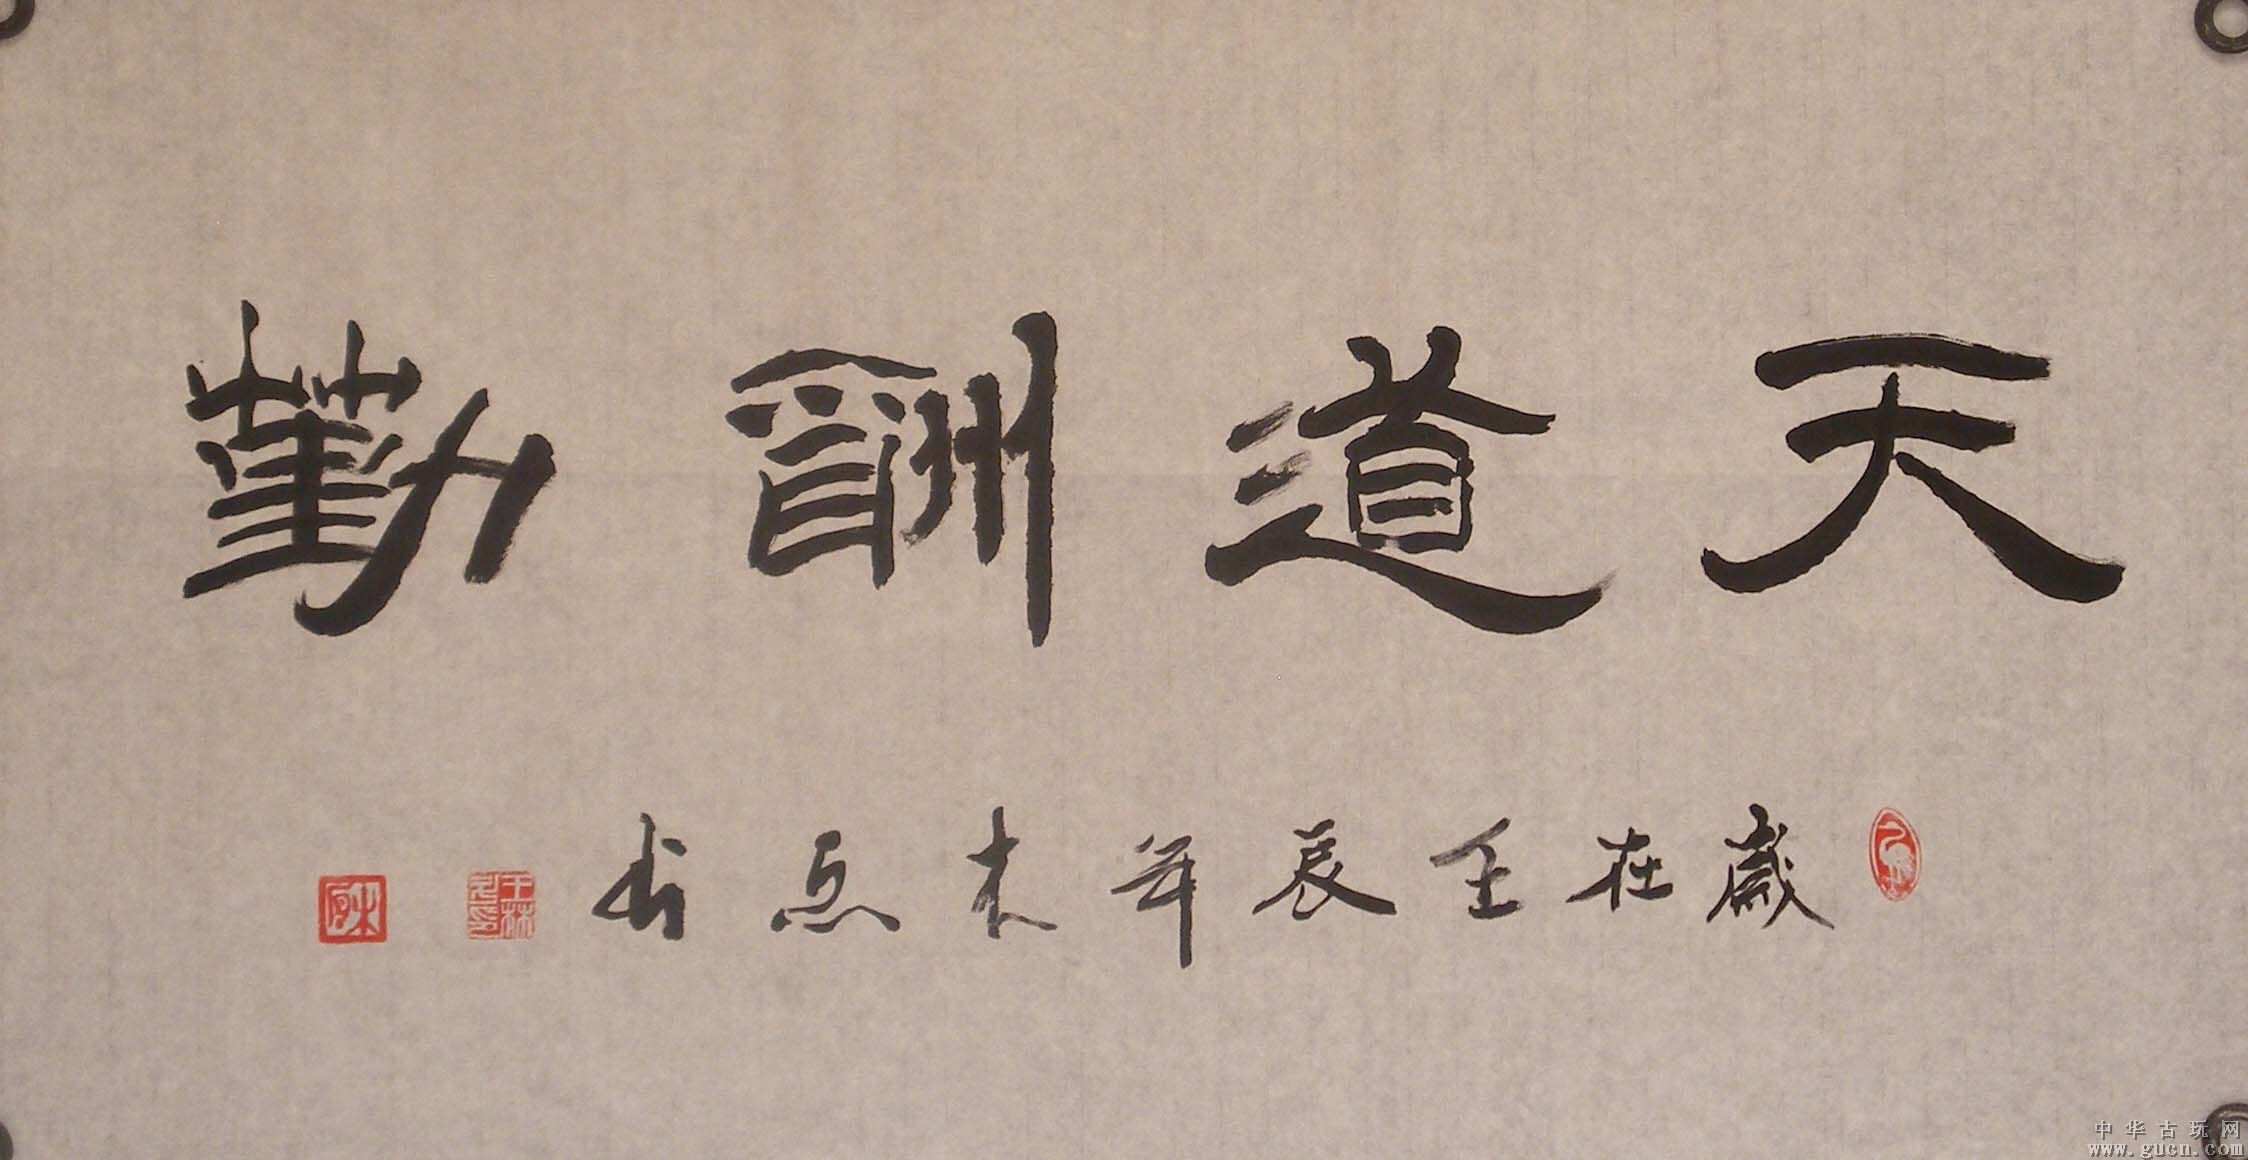 天道酬勤
歲在壬辰年木点书
王林
中华古玩网
www.gucn.com